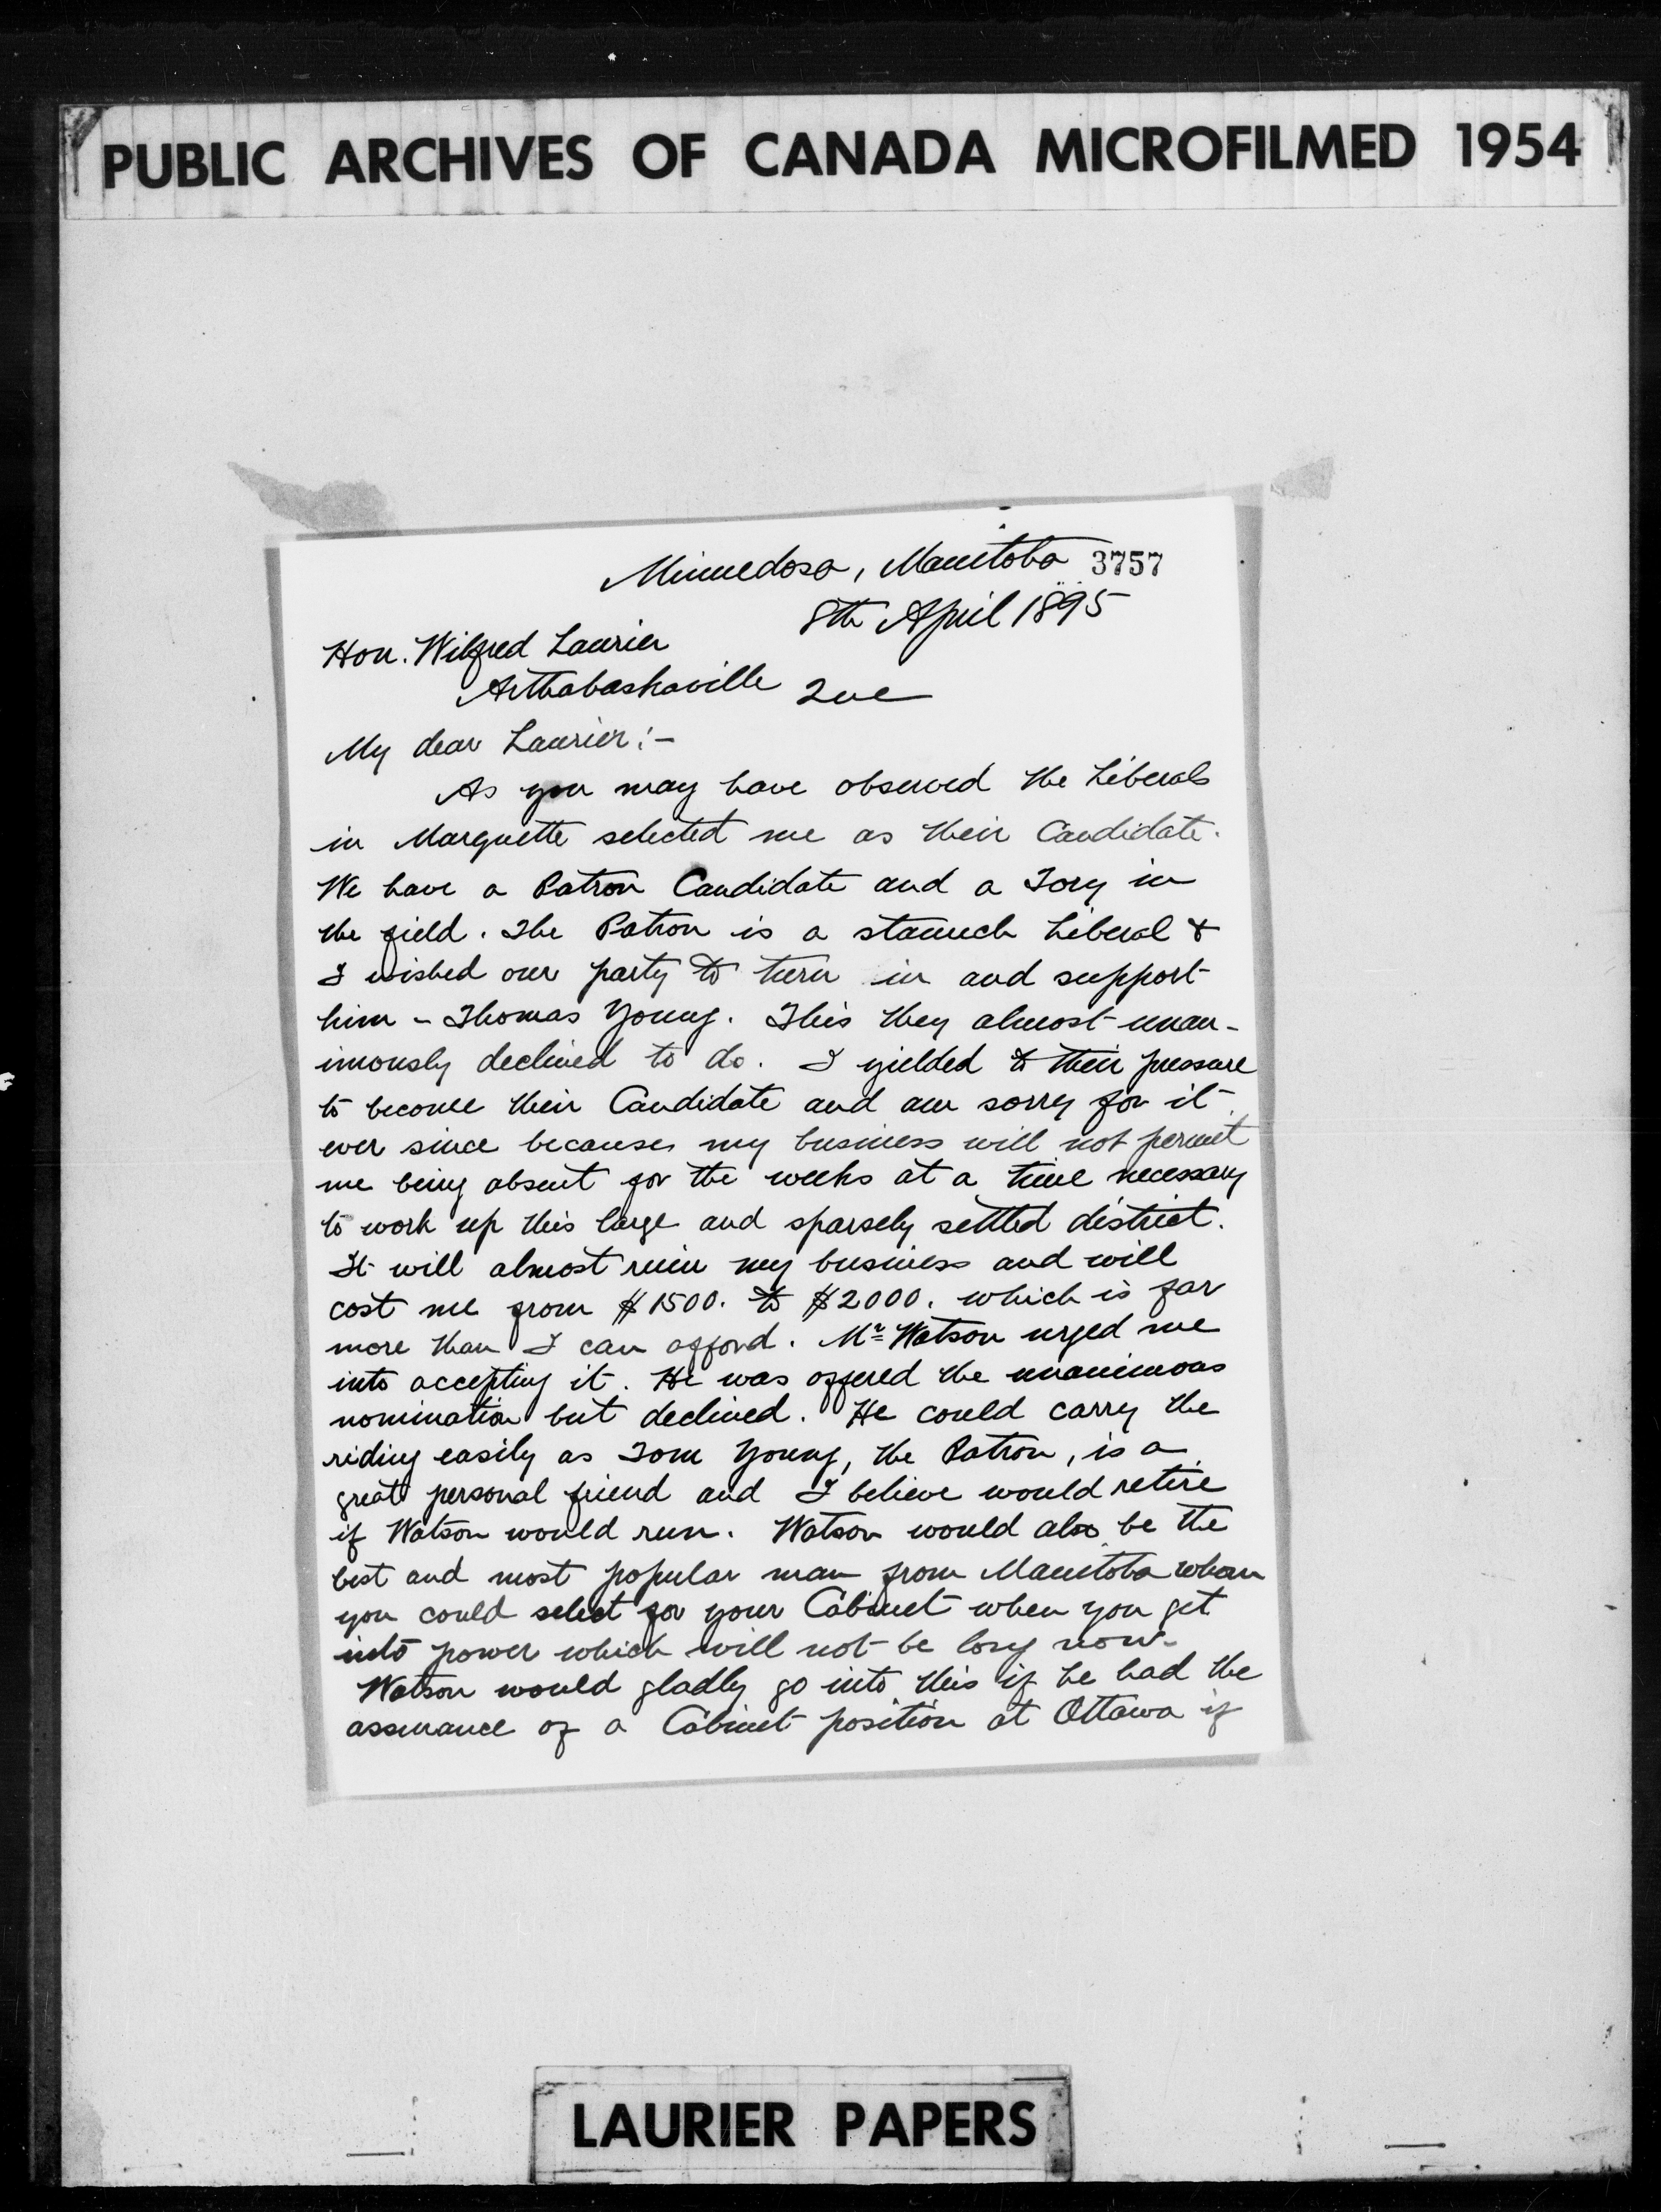 PUBLIC ARCHIVES OF CANADA MICROFILMED 1954
Minnedosa, Manitoba 3757
8th April 1895
Hon. Wilfred Laurier
Arthabaskaville Que
My dear Laurier:-
As you may have observed the Liberals
in Marquette selected me as their Candidate.
We have a Patron Candidate and a Tory in
the field. The Patron is a staunch Liberal &
I wished our party to turn in and support
him - Thomas Young. This they almost unan-
imously declined to do. I yielded to their pressure
to become their Candidate and am sorry for it
ever since because my business will not permit
me being absent for the weeks at a time necessary
to work up this large and sparsely settled district.
It will almost ruin my business and will
cost me from $1500. to $2000. which is far
more than I can afford. Mr Watson urged me
into accepting it. He was offered the unanimous
nomination but declined. He could carry the
riding easily as Tom Young, the Patron, is a
great personal friend and I believe would retire
if Watson would run. Watson would also be the
best and most popular man from Manitoba whom
you could select for your Cabinet when you get
into power which will not be long now.
Watson would gladly go into this if he had the
assurance of a Cabinet position at Ottawa if
LAURIER PAPERS